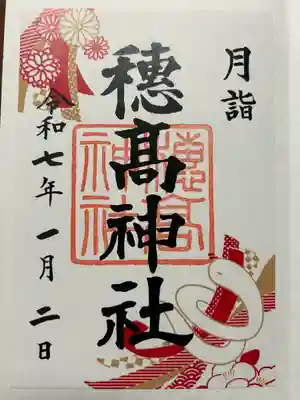 月詣
穂髙神社
穂高神社
令和七年一月二日